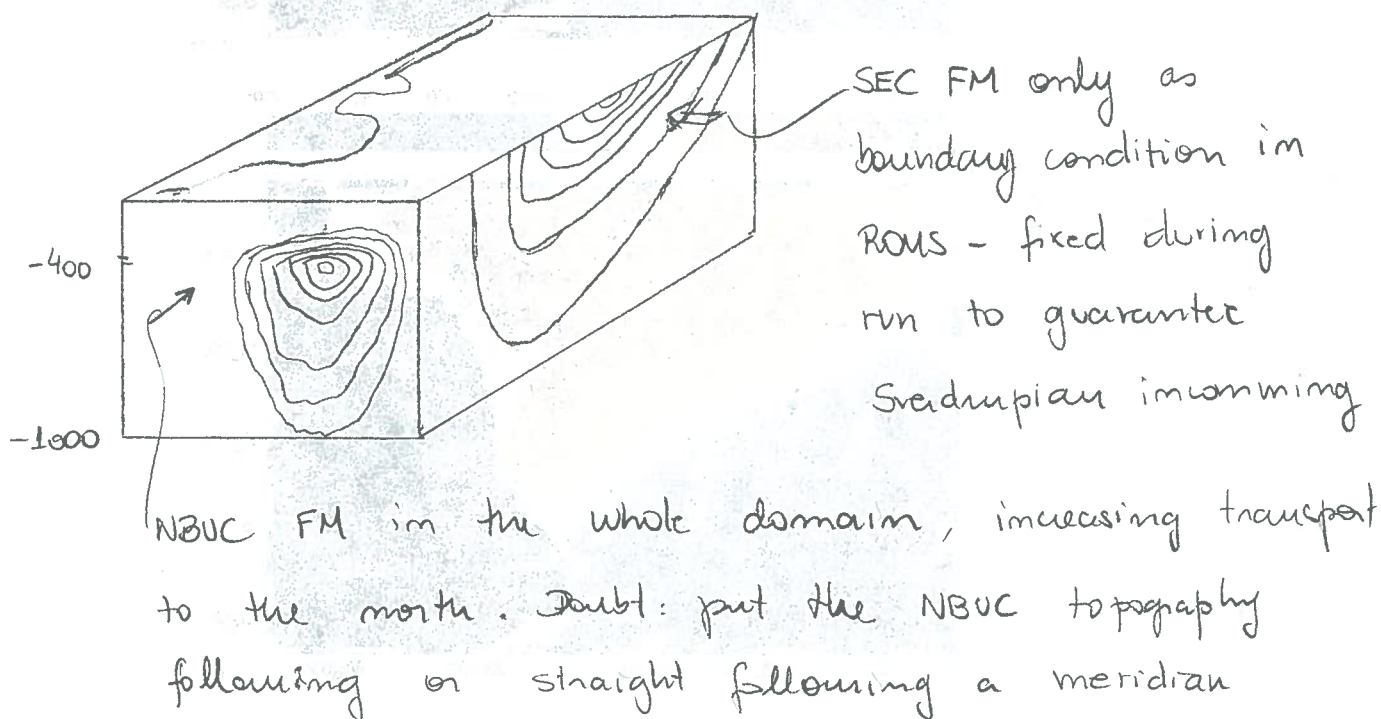 SEC FM only as
boundary condition in
ROMS - fixed during
run to guarantee
Sverdrupian incomming
-400
-1000
NBUC FM in the whole domain, increasing transport
to the north. Doubt: put the NBUC topography
following or straight following a meridian